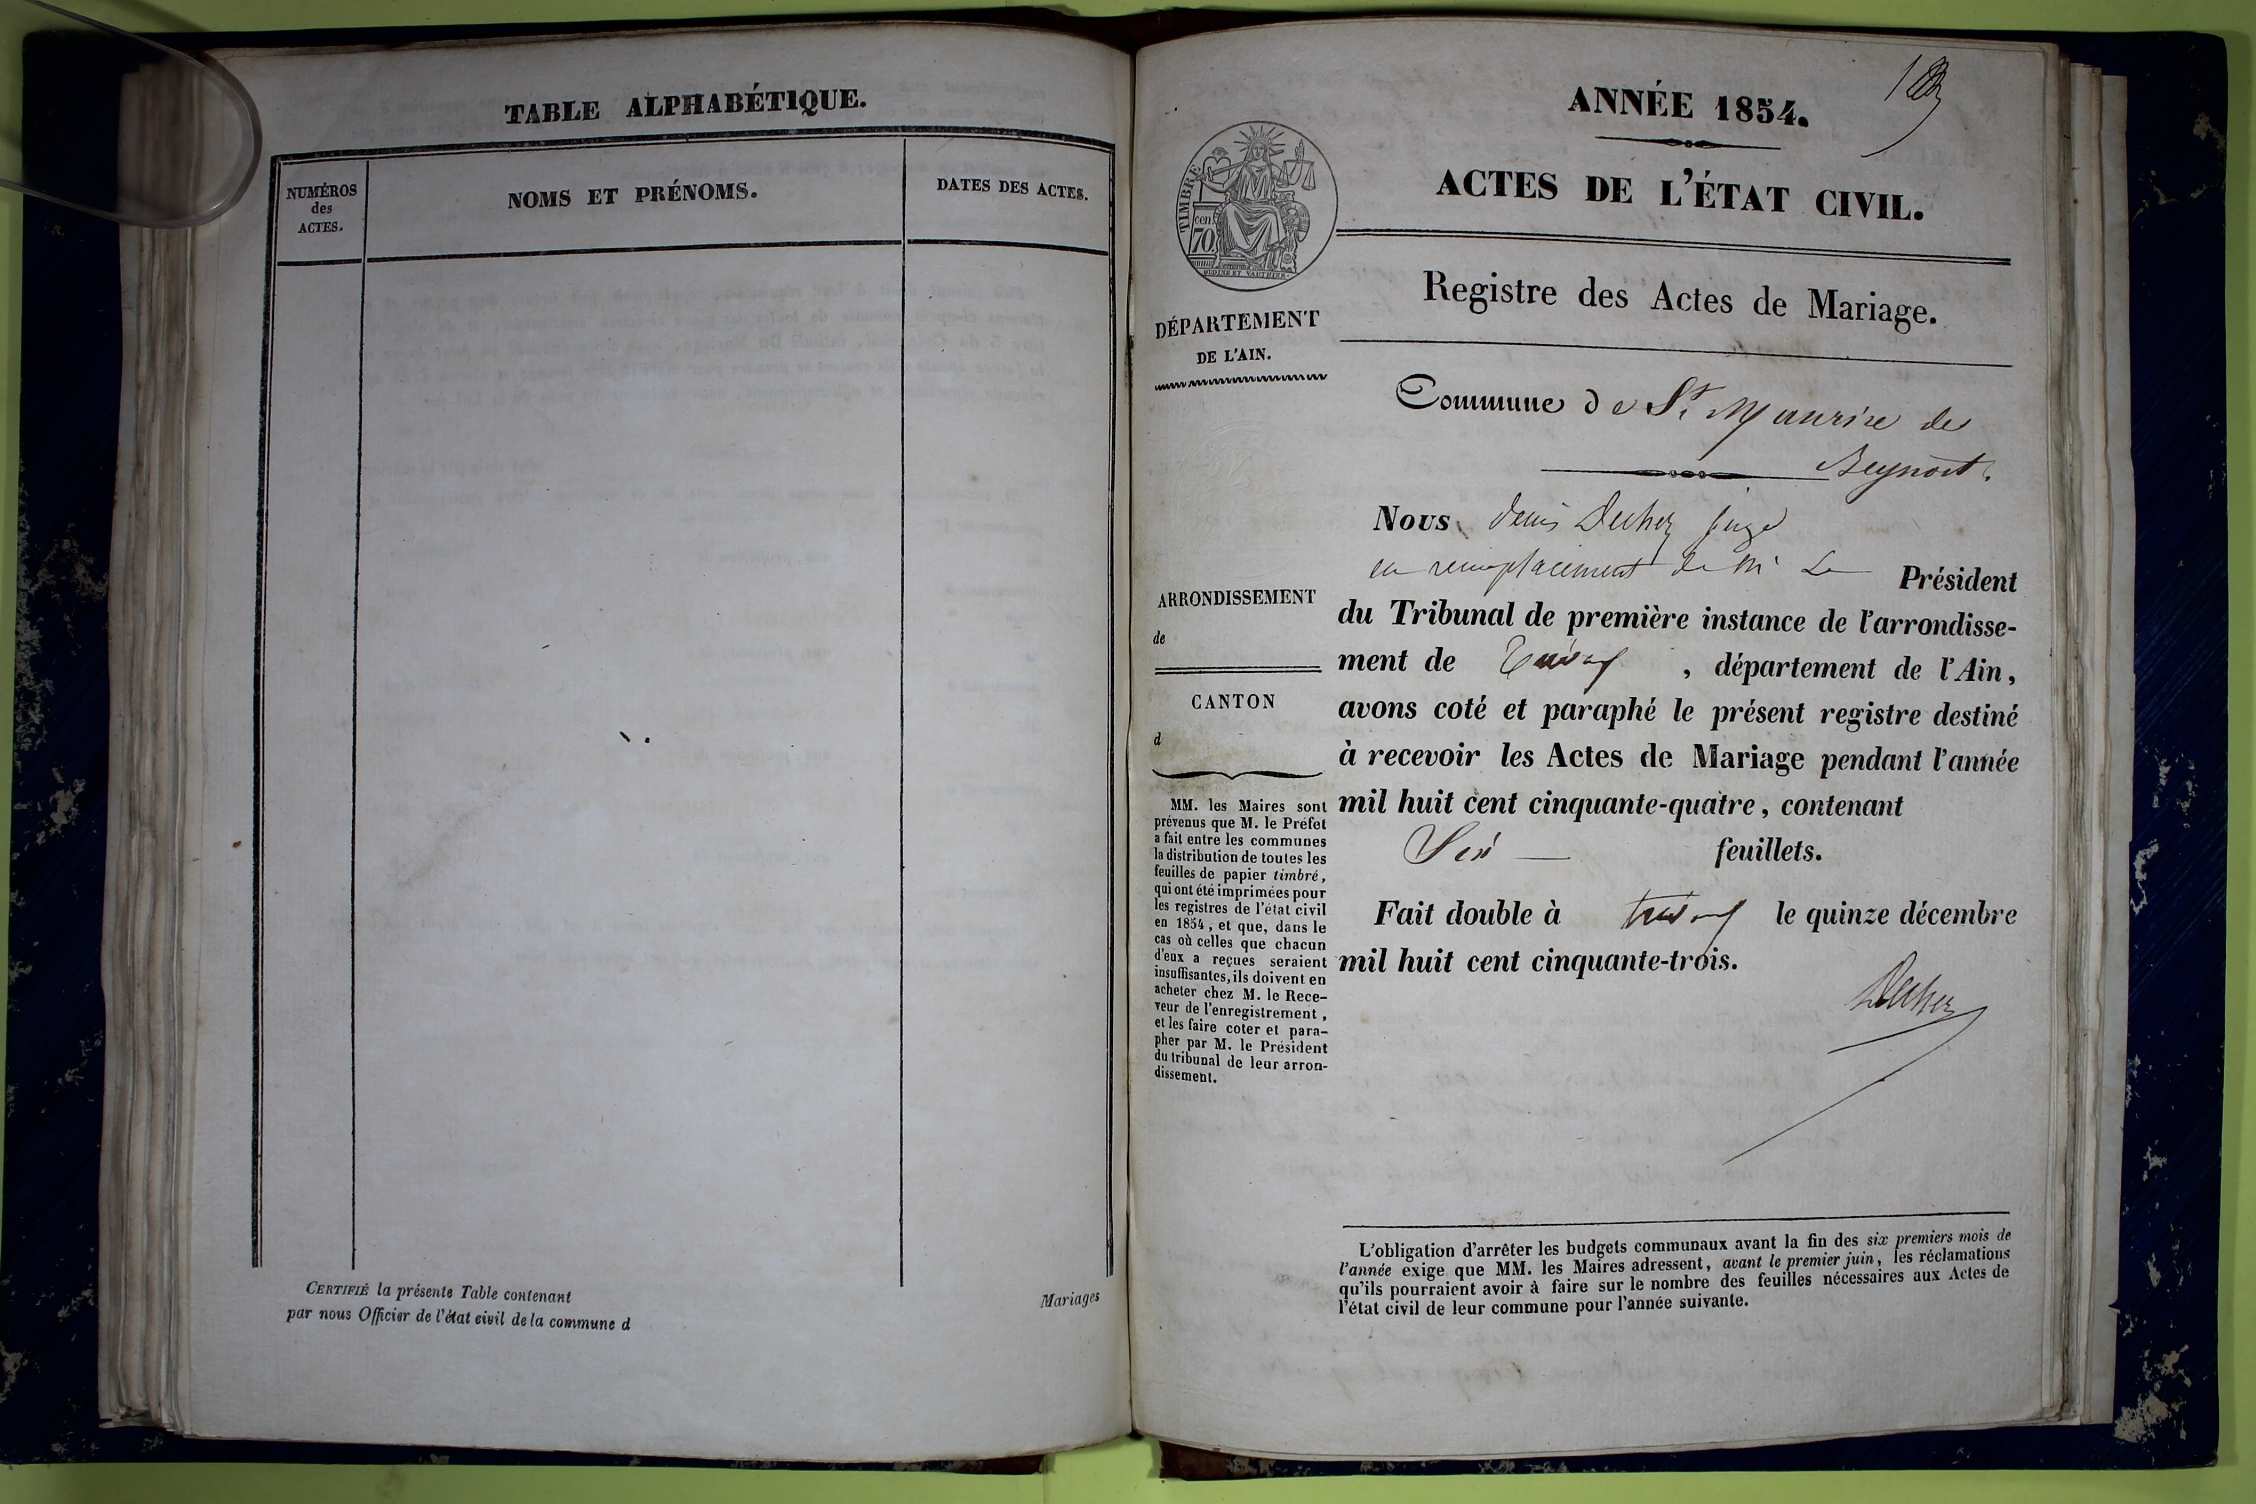 TABLE ALPHABÉTIQUE.
NUMÉROS
des
ACTES.
NOMS ET PRÉNOMS.
DATES DES ACTES.
CERTIFIÉ la présente Table contenant
Mariages
par nous Officier de l'état civil de la commune d
ANNÉE 1854.
ACTES DE L'ÉTAT CIVIL.
TIMBRE
cen.
70
Registre des Actes de Mariage.
DÉPARTEMENT
DE L'AIN.
Commune de St Maurice de
Beynost.
Nous, denis Decher juge
en remplacement de Mr Le Président
ARRONDISSEMENT
de
CANTON
d
du Tribunal de première instance de l'arrondisse-
ment de Trévoux, département de l'Ain,
avons coté et paraphé le présent registre destiné
à recevoir les Actes de Mariage pendant l'année
mil huit cent cinquante-quatre, contenant
Six feuillets.
Fait double à trévoux le quinze décembre
mil huit cent cinquante-trois.
Decher
MM. les Maires sont
prévenus que M. le Préfet
a fait entre les communes
la distribution de toutes les
feuilles de papier timbré,
qui ont été imprimées pour
les registres de l'état civil
en 1854, et que, dans le
cas où celles que chacun
d'eux a reçues seraient
insuffisantes, ils doivent en
acheter chez M. le Rece-
veur de l'enregistrement,
et les faire coter et para-
pher par M. le Président
du tribunal de leur arron-
dissement.
L'obligation d'arrêter les budgets communaux avant la fin des six premiers mois de
l'année exige que MM. les Maires adressent, avant le premier juin, les réclamations
qu'ils pourraient avoir à faire sur le nombre des feuilles nécessaires aux Actes de
l'état civil de leur commune pour l'année suivante.